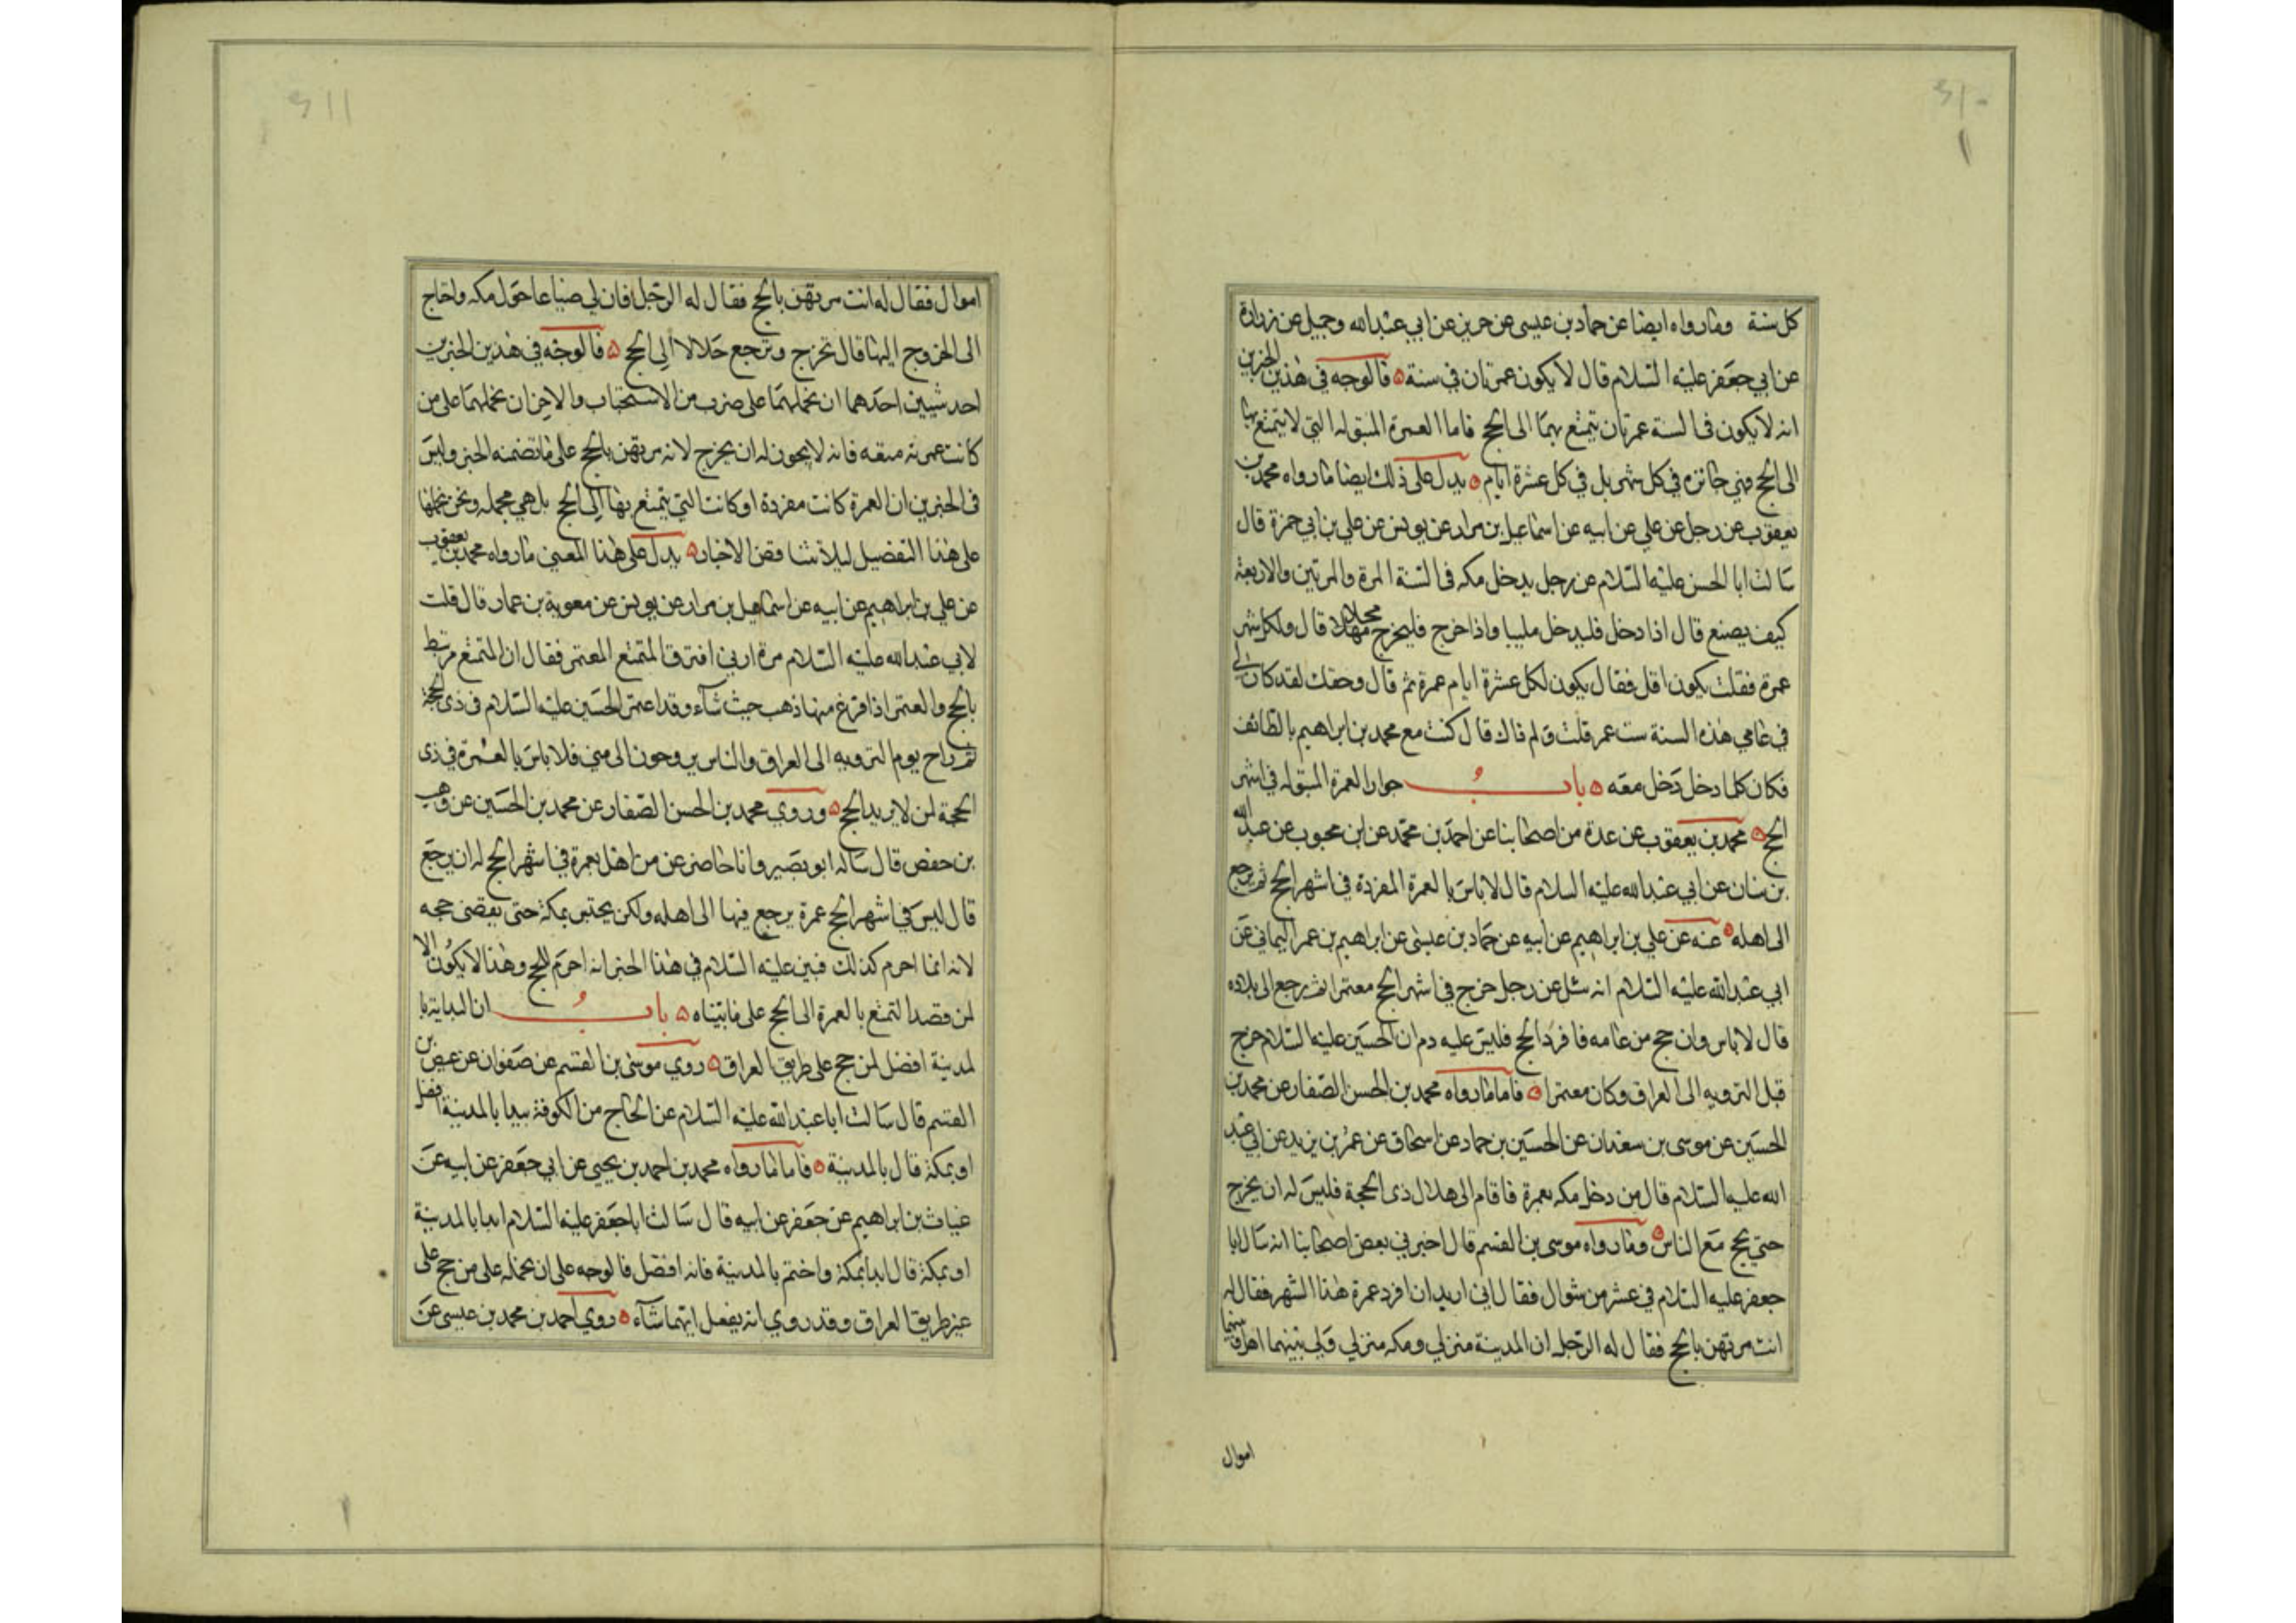 كل سنة وما رواه ايضا عن حماد بن عيسى عن حريز عن ابي عبد الله وجميل عن زرارة
عن ابي جعفر عليه السلام قال لا يكون عمرتان في سنة ه فالوجه في هذين الخبرين
انه لا يكون في السنة عمرتان يتمتع بهما الى الحج فاما العمرة المبتوله التي لا يتمتع بها
الى الحج فهي جائزه في كل شهر بل في كل عشرة ايام ه يدل على ذلك ايضا ما رواه محمد بن
يعقوب عن رجل عن علي عن ابيه عن اسماعيل بن مرار عن يونس عن علي بن ابي حمزة قال
سالت ابا الحسن عليه السلام عن رجل يدخل مكه في السنة المرة والمرتين والاربعة
كيف يصنع قال اذا دخل فليدخل ملبيا واذا خرج فليخرج محلا قال ولكل شهر
عمرة فقلت يكون اقل فقال يكون لكل عشرة ايام عمرة ثم قال وحقك لقد كان لي
في عامي هذه السنة ست عمر قلت ولم ذاك قال كنت مع محمد بن ابراهيم بالطائف
فكان كلما دخل دخل معه ه باب جواز العمرة المبتوله في اشهر
الحج ه محمد بن يعقوب عن عدة من اصحابنا عن احمد بن محمد عن ابن محبوب عن عبد الله
بن سنان عن ابي عبد الله عليه السلام قال لا باس بالعمرة المفردة في اشهر الحج ثم يرجع
الى اهله ه عنه عن علي بن ابراهيم عن ابيه عن حماد بن عيسى عن ابراهيم بن عمر اليماني عن
ابي عبد الله عليه السلام انه سئل عن رجل خرج في اشهر الحج معتمرا ثم رجع الى بلاده
قال لا باس وان حج من عامه فافرد الحج فليس عليه دم ان الحسين عليه السلام خرج
قبل الترويه الى العراق وكان معتمرا ه فاما ما رواه محمد بن الحسن الصفار عن محمد بن
الحسين عن موسى بن سعدان عن الحسين بن حماد عن اسحاق عن عمر بن يزيد عن ابي عبد
الله عليه السلام قال من دخل مكه بعمرة فاقام الى هلال ذي الحجة فليس له ان يخرج
حتي يحج مع الناس ه وما رواه موسى بن القسم قال اخبرني بعض اصحابنا انه سال ابا
جعفر عليه السلام في عشر من شوال فقال اني اريد ان افرد عمرة هذا الشهر فقال له
انت مرتهن بالحج فقال له الرجل ان المدينة منزلي ومكه منزلي ولي بينهما اهل وبينهما
اموال
اموال فقال له انت مرتهن بالحج فقال له الرجل فان لي ضياعا حول مكه واحتاج
الى الخروج اليها قال تخرج وترجع حلالا الى الحج ه فالوجه في هذين الخبرين
احد شيئين احدهما ان نحملهما على ضرب من الاستحباب والاخر ان نحملهما على من
كانت عمرته متعه فانه لا يجوز له ان يخرج لانه مرتهن بالحج على ما تضمنه الخبر وليس
في الخبرين ان العمرة كانت مفردة او كانت التي يتمتع بها الى الحج بل هي مجمله ونحن نحملها
على هذا التفصيل ليلا تتناقض الاخبار ه يدل على هذا المعنى ما رواه محمد بن يعقوب
عن علي بن ابراهيم عن ابيه عن اسماعيل بن مرار عن يونس عن معوية بن عمار قال قلت
لابي عبد الله عليه السلام من اين افترق المتمتع المعتمر فقال ان المتمتع مرتبط
بالحج والمعتمر اذا فرغ منها ذهب حيث شآء وقد اعتمر الحسين عليه السلام في ذى الحجة
ثم راح يوم الترويه الى العراق والناس يروحون الى منى فلا باس بالعمرة في ذى
الحجة لمن لا يريد الحج ه وروي محمد بن الحسن الصفار عن محمد بن الحسين عن وهيب
بن حفص قال ساله ابو بصير وانا حاضر عن من اهل بعمرة في اشهر الحج له ان يرجع
قال ليس في اشهر الحج عمرة يرجع فيها الى اهله ولكن يحتبس بمكة حتى يقضى حجه
لانه انما احرم كذلك فبين عليه السلام في هذا الخبر انه احرم للحج وهذا لا يكون الا
لمن قصد التمتع بالعمرة الى الحج على ما بيناه ه باب ان البداية با
لمدينة افضل لمن حج على طريق العراق ه روي موسى بن القسم عن صفوان عن عيص بن
القسم قال سالت ابا عبد الله عليه السلام عن الحاج من الكوفة يبدا بالمدينة افضل
او بمكة قال بالمدينة ه فاما ما رواه محمد بن احمد بن يحيي عن ابي جعفر عن ابيه عن
غياث بن ابراهيم عن جعفر عن ابيه قال سالت ابا جعفر عليه السلام ابدا بالمدينة
او بمكة قال ابدا بمكة واختم بالمدينة فانه افضل فالوجه على ان نحمله على من حج على
غير طريق العراق وقد روي انه يفعل ايهما شآء ه روي احمد بن محمد بن عيسى عن